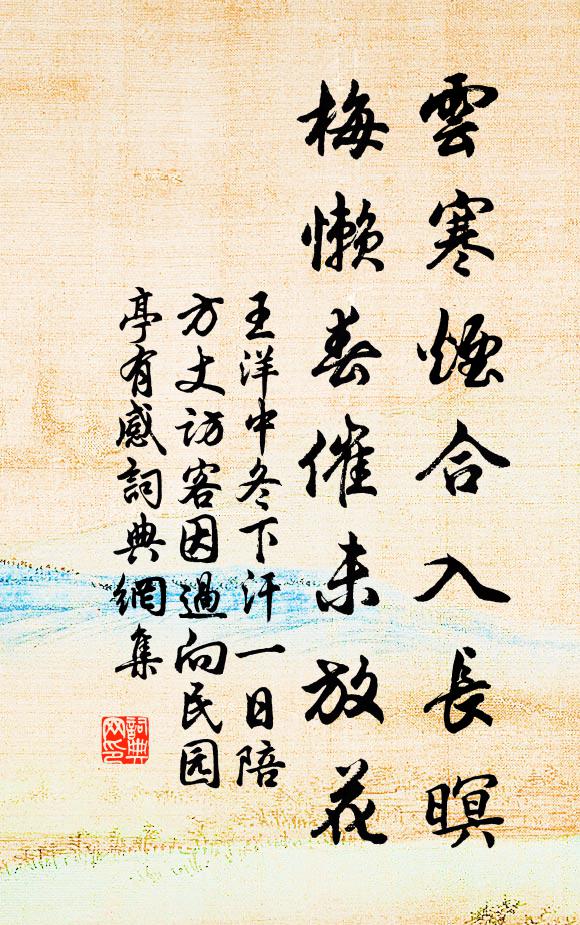 雲寒煙合入長暝
梅懒春催未放花
王洋中冬下汗一日陪
方丈訪客因過向民园
亭有感詞典網集
詞典
网印